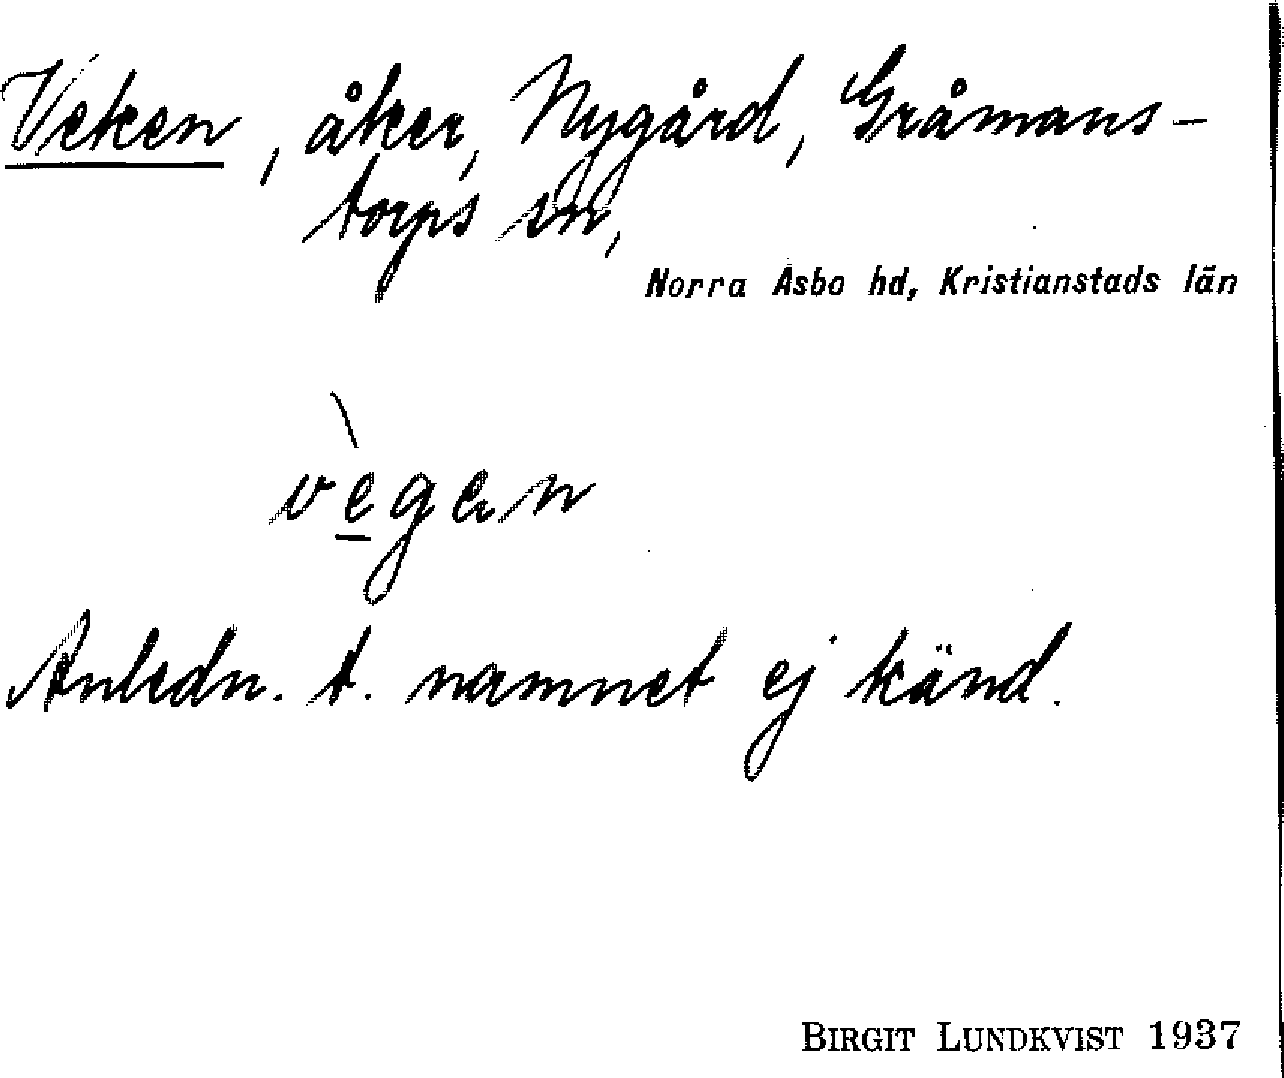 Veken, åker, Nygård, Gråmans-
torps sn,
Norra Åsbo hd, Kristianstads län
vègen
Anledn. t. namnet ej känd.
BIRGIT LUNDKVIST 1937